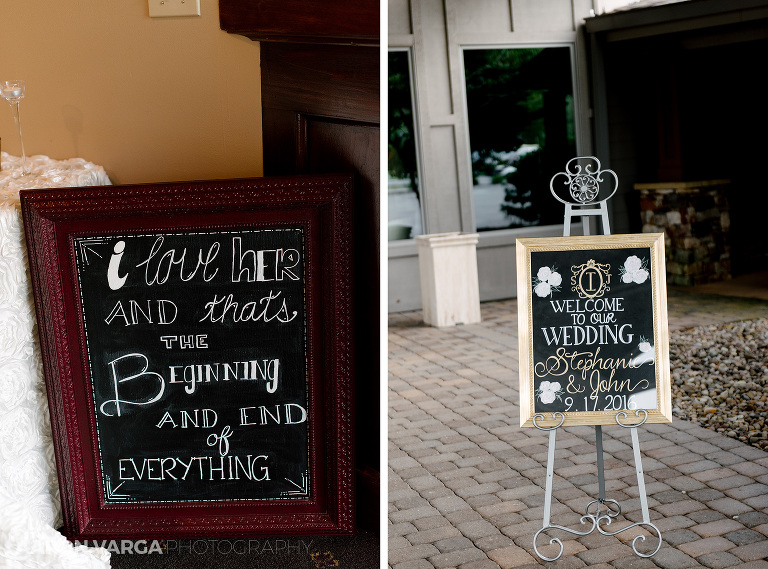 i love HER
AND that's
THE
BEGINNING
AND END
of
EVERYTHING
VARGA PHOTOGRAPHY
I
WELCOME
TO OUR
WEDDING
Stephanie
& John
9.17.2016